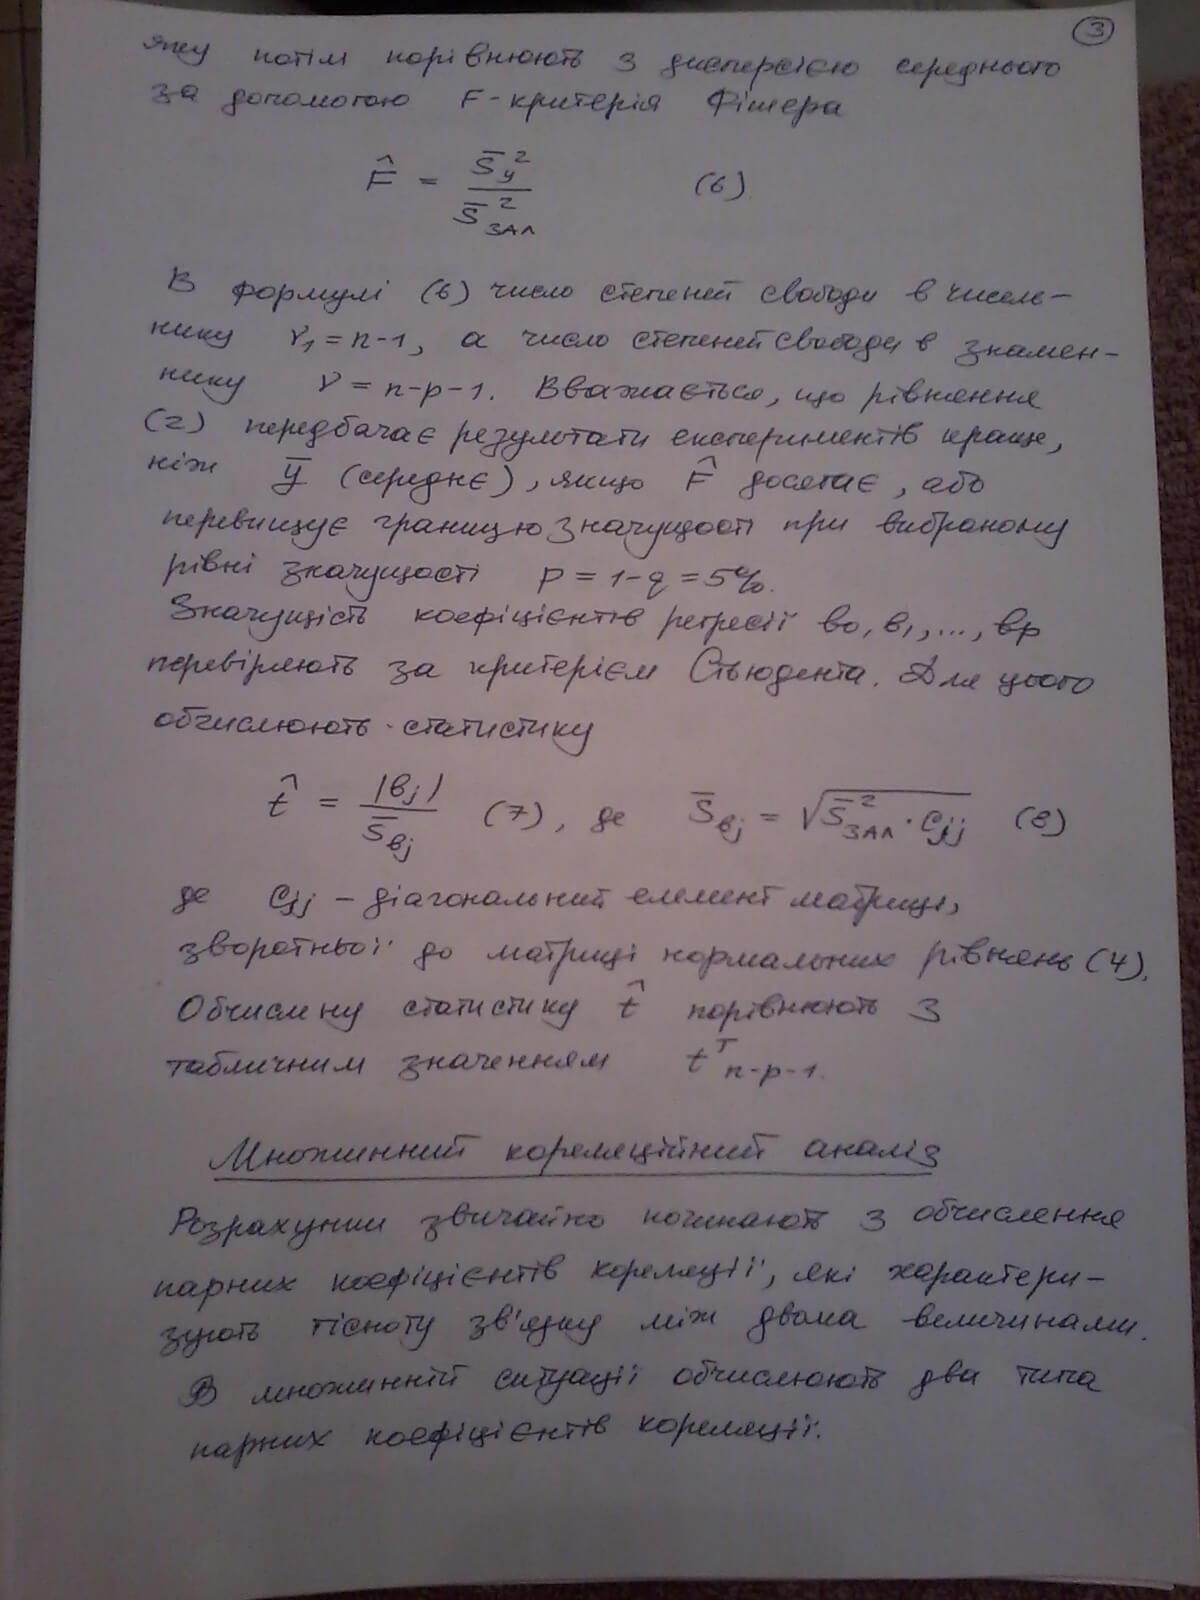 3
яку потім порівнюють з дисперсією середнього
за допомогою F-критерія Фішера
F̂ = S̄у² / S̄²ЗАЛ (6)
В формулі (6) число степеней свободи в чисель-
нику ν₁ = n-1, а число степеней свободи в знамен-
нику ν = n-p-1. Вважається, що рівняння
(2) передбачає результати експериментів краще,
ніж ȳ (середнє), якщо F̂ досягає, або
перевищує границю значущості при вибраному
рівні значущості p = 1-q = 5%.
Значущість коефіцієнтів регресії в₀, в₁, ..., вр
перевіряють за критерієм Стьюдента. Для цього
обчислюють статистику
t̂ = |вj| / S̄вj (7), де S̄вj = √(S̄²ЗАЛ · Cjj) (8)
де Cjj – діагональний елемент матриці,
зворотньої до матриці нормальних рівнянь (4).
Обчислену статистику t̂ порівнюють з
табличним значенням tᵀn-p-1.
Множинний кореляційний аналіз
Розрахунки звичайно починають з обчислення
парних коефіцієнтів кореляції, які характери-
зують тісноту зв'язку між двома величинами.
В множинній ситуації обчислюють два типа
парних коефіцієнтів кореляції.